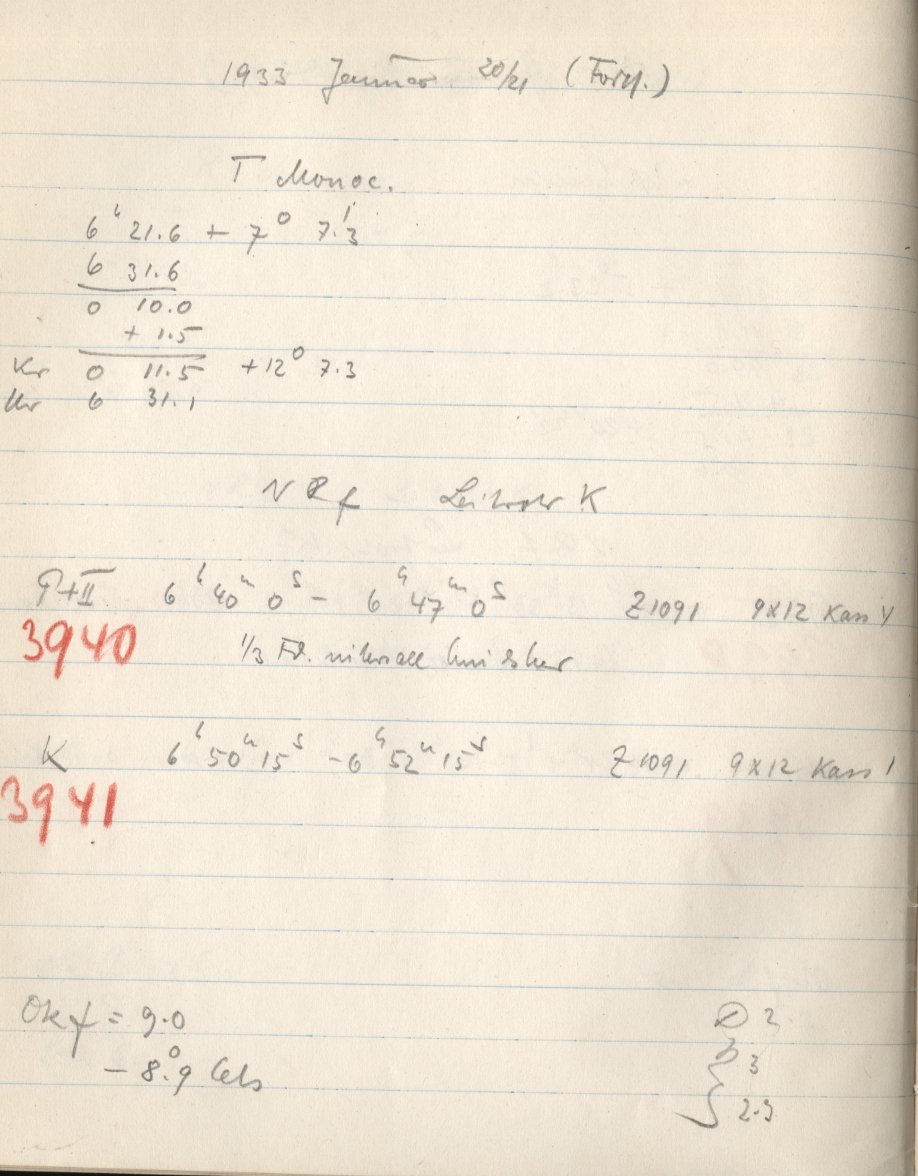 1933 Januar 20/21 (Forts.)
T Monoc.
6h 21.6 + 7° 7.'3
6 31.6
0 10.0
+ 1.5
Kr 0 11.5 +12° 7.3
Ur 6 31.1
Leitrohr K
P+II 6h 40m 0s – 6h 47m 0s Z1091 9x12 Kass V
3940
1/3
K 6h 50m 15s – 6h 52m 15s Z1091 9x12 Kass 1
3941
Okf = 9.0
– 8.°9 Cels
2
3
2-3